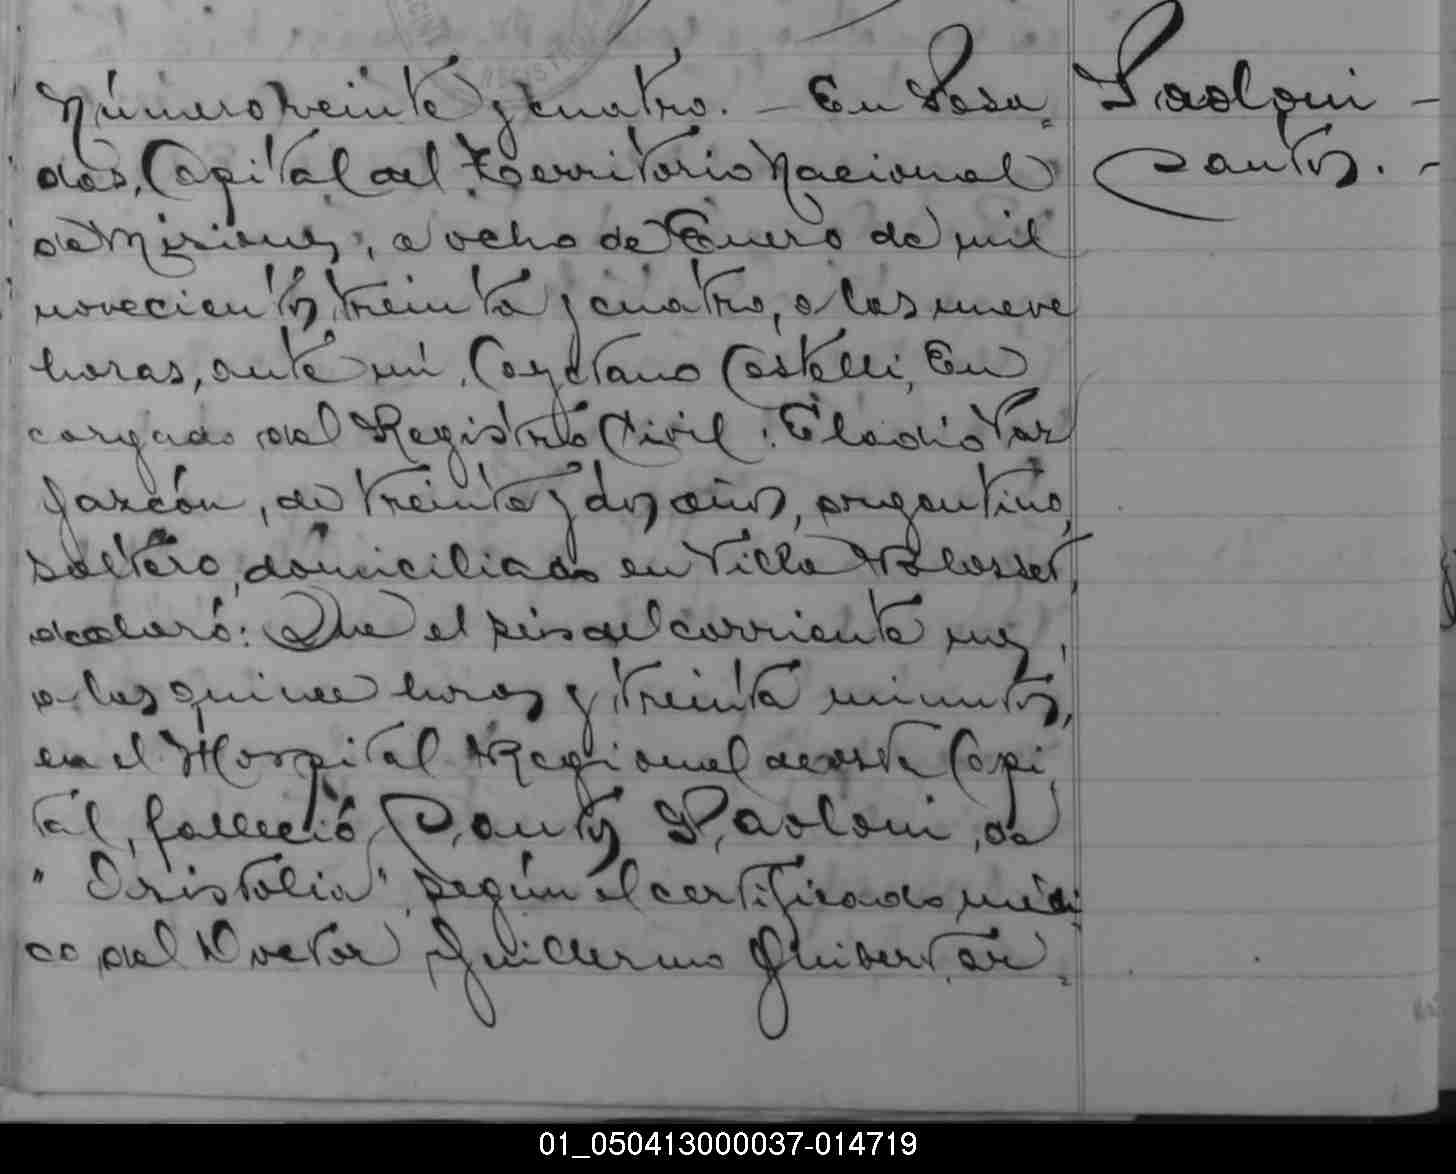 Número veinte y cuatro. — En Posa=
das, Capital del Territorio Nacional
de Misiones, a ocho de Enero de mil
novecientos treinta y cuatro, a las nueve
horas, ante mí, Cayetano Castelli, En
cargado del Registro Civil: Eladio
de treinta y dos años, argentino,
soltero, domiciliado en Villa
declaró: Que el seis del corriente mes,
a las quince horas y treinta minutos,
en el Hospital Regional de esta Capi
tal, falleció Santos Paoloni, de
"Asistolia", según el certificado médi
co del Doctor Guillermo
Paoloni —
Santos. -
REGISTRO
01_050413000037-014719